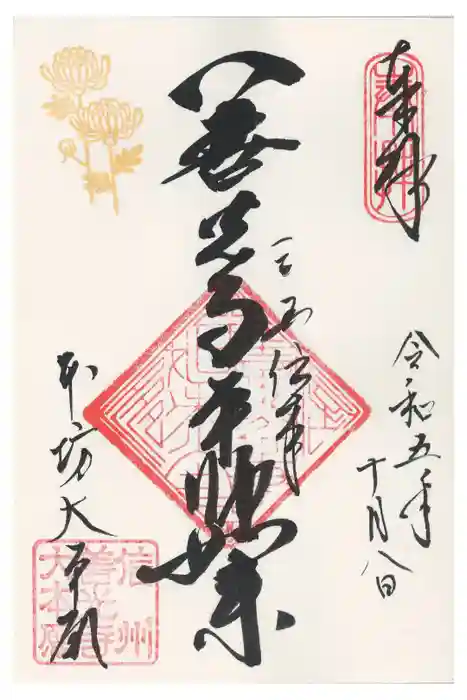 奉拝
令和五年
十月八日
三国伝来
善光寺本師如来
本坊大本願
信州
善光寺
大本願